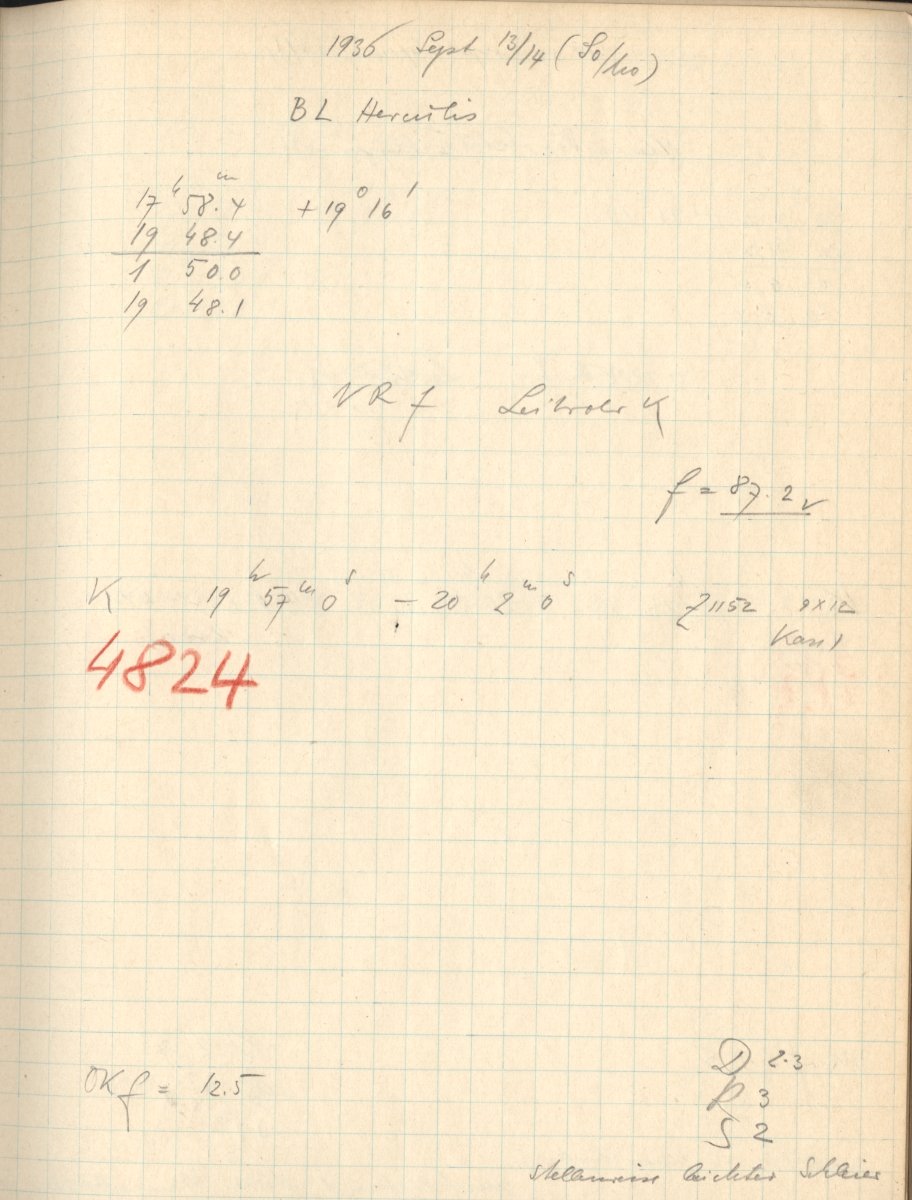 1936 Sept 13/14 (So/Mo)
BL Herculis
17h 58.4m + 19° 16'
19 48.4
1 50.0
19 48.1
VR f Leitrohr K
f = 87.2
K 19h 57m 0s – 20h 2m 0s Z1152 9x12
4824
OK f = 12.5
D 2.3
R 3
S 2
stellenweise leichter Schleier